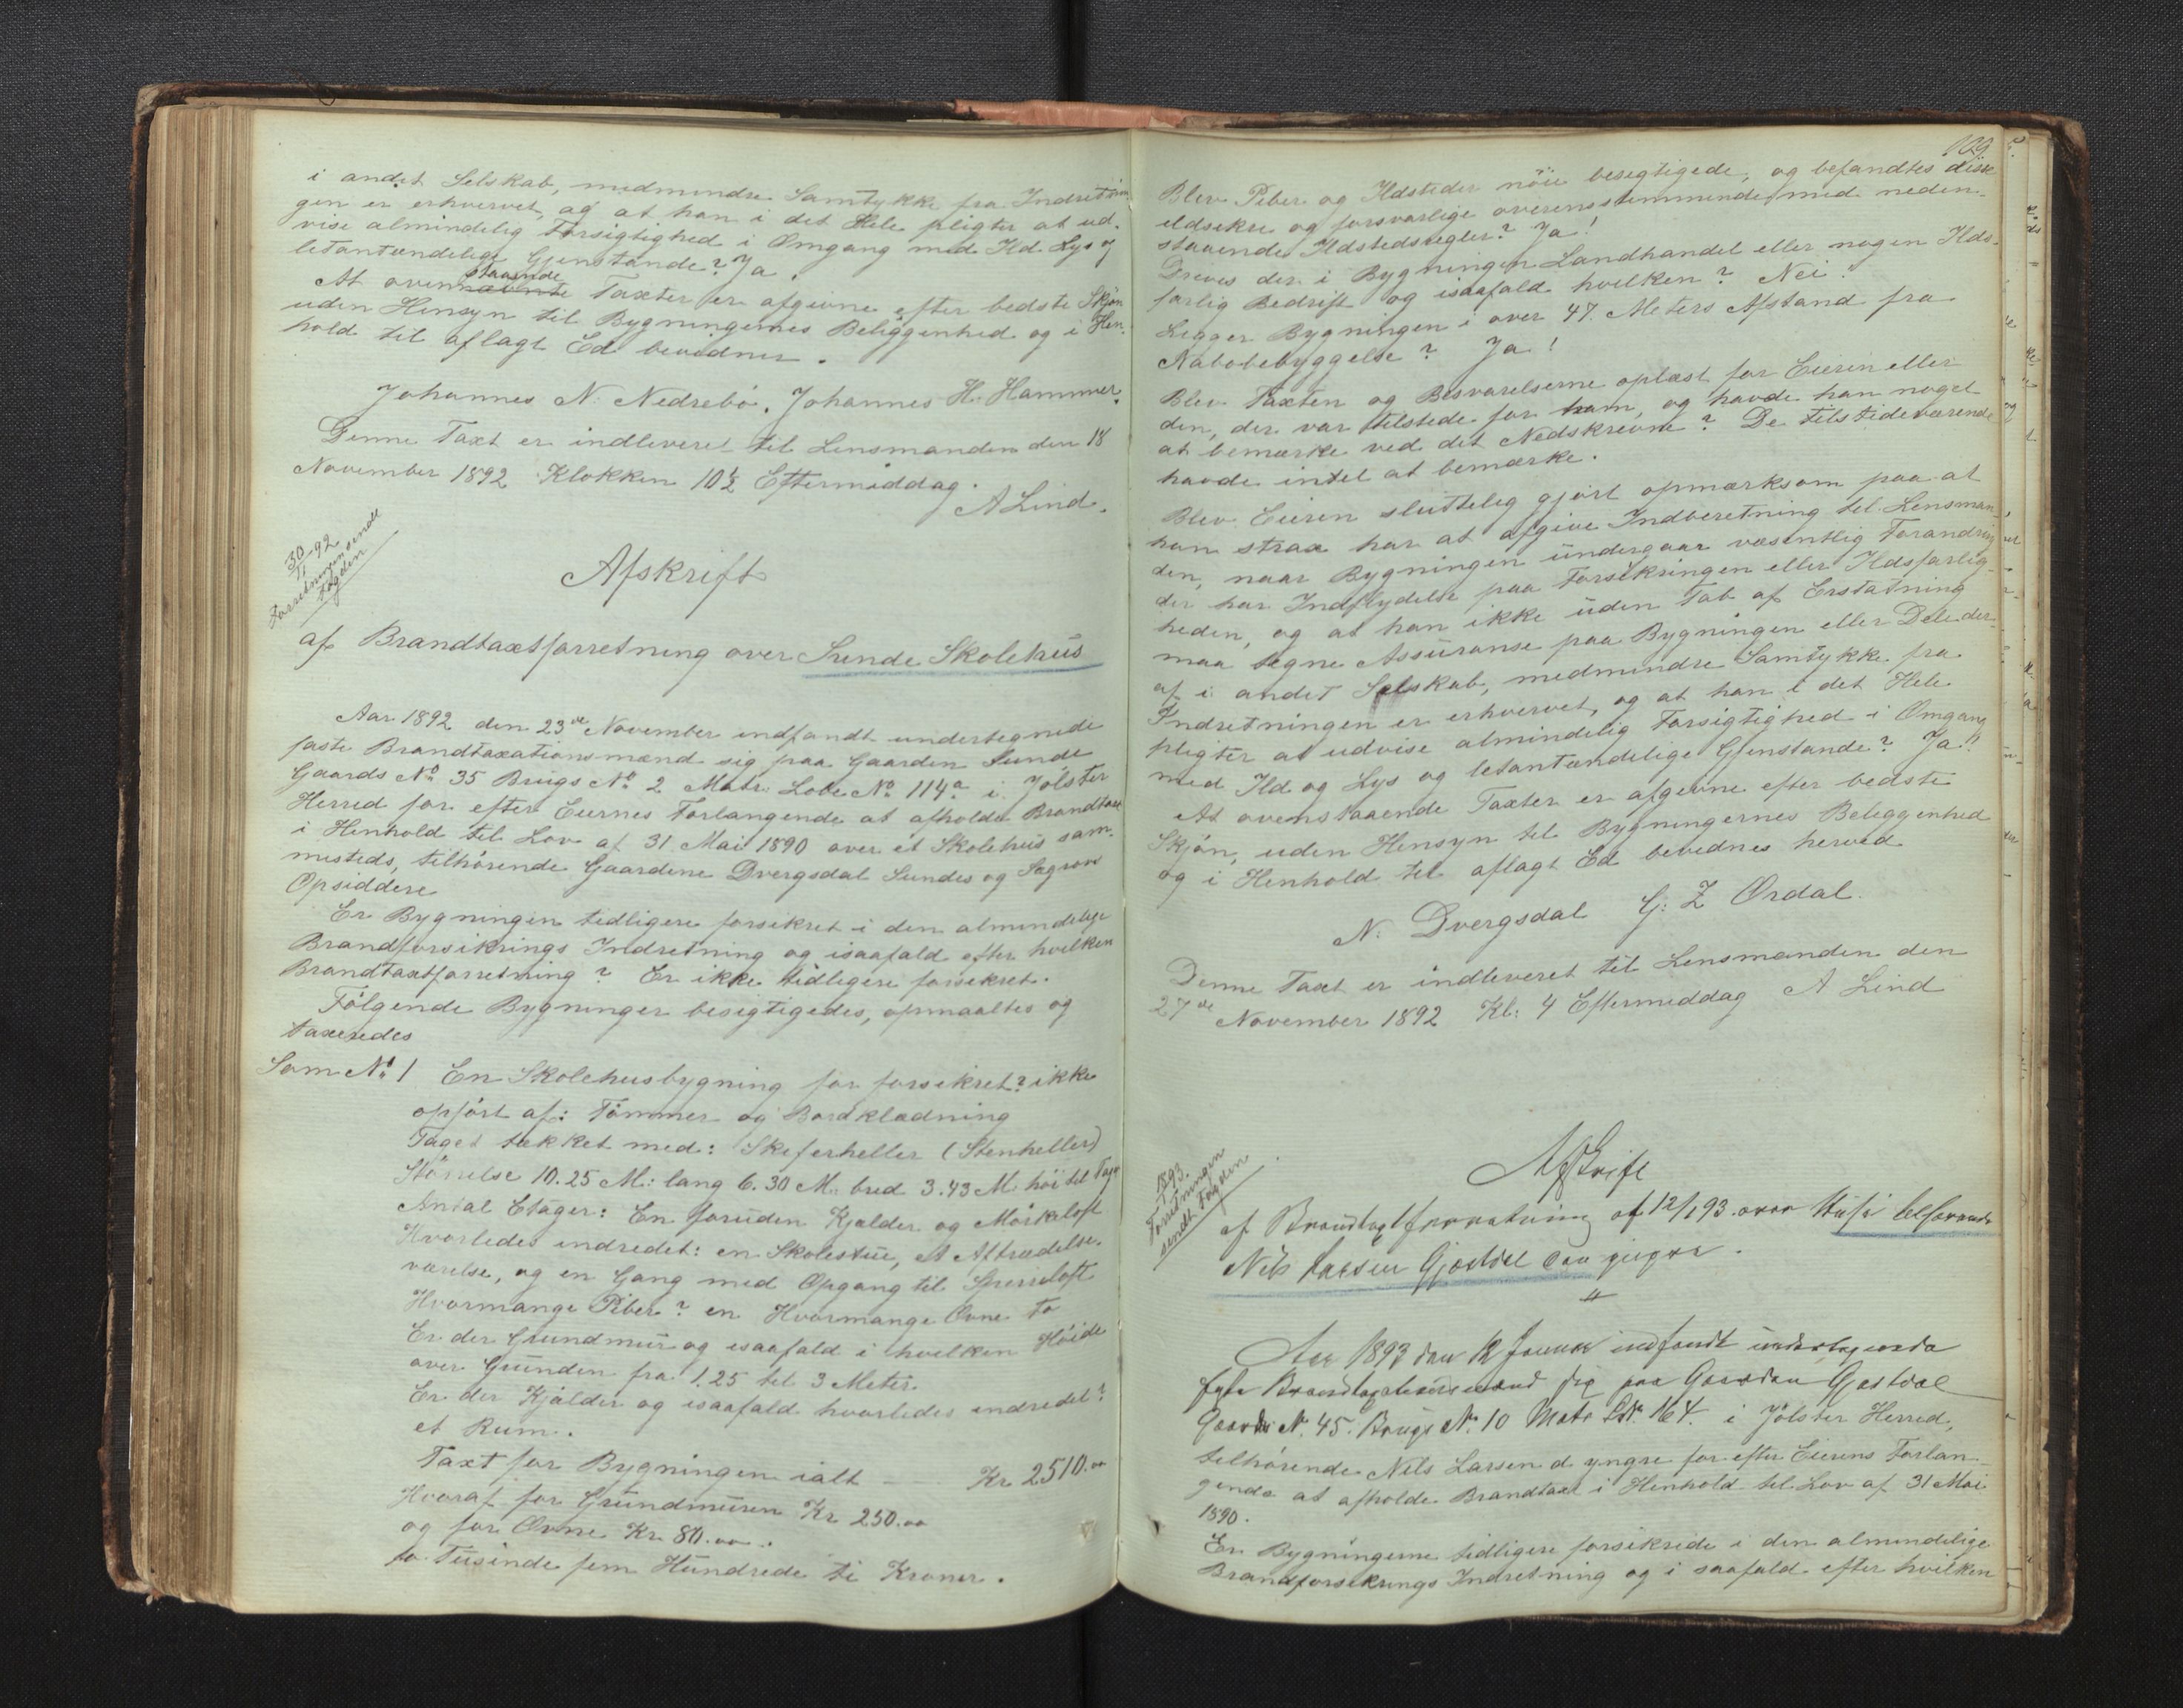 i andet Selskab, medmindre Samtykke fra Indretnin
gen er erhvervet, og at han i det Hele pligter at ud-
vise almindelig Forsigtighed i Omgang med Ild Lys og
letantændelige Gjenstande? Ja.
At ovennævnte staaende Taxter er afgivne efter bedste Skjøn
uden Hensyn til Bygningernes Beliggenhed og i Hen
hold til aflagt Ed beedner.
Johannes N. Nedrebø. Johannes H. Hammer.
Denne Taxt er indleveret til Lensmanden den 18
November 1892 Klokken 10½ Eftermiddag.
A Lind.
30/11-92
Forretningen sendt
Fogden
Afskrift
af Brandtaxtforretning over Sunde Skolehus
Aar 1892 den 23de November indfandt undertegnede
faste Brandtaxationsmænd sig paa Gaarden Sunde
Gaards No 35 Brugs No 2 Matr. Løbe No 114a i Jølster
Herred for efter Eiernes Forlangende at afholde Brandtaxt
i Henhold til Lov af 31 Mai 1890 over et Skolehus sam-
mesteds, tilhørende Gaardene Dvergsdal Sundes og Sægrov
Opsiddere
Er Bygningen tidligere forsikret i den almindelige
Brandforsikrings Indretning og isaafald efter hvilken
Brandtaxtforretning? Er ikke tidligere forsikret.
Følgende Bygninger besigtigedes, opmaaltes og
taxeredes
Som No 1 En Skolehusbygning før forsikret? ikke
opført af: Tømmer og Bordklædning
Taget tækket med: Skiferheller (Stenheller)
Størrelse 10.25 M: lang 6.30 M. bred 3.43 M. høi til Tag
Antal Etager: En foruden Kjælder og Mørkeloft
Hvorledes indredet: en Skolestue, et Aftrædelse-
værelse, og en Gang med Opgang til Sperreloft
Hvormange Piber? en Hvormange Ovne to
Er der Grundmur og isaafald i hvilken Høide
over Grunden fra 1.25 til 3 Meter
Er der Kjælder og isaafald hvorledes indredet?
et Rum.
Taxt for Bygningen ialt - Kr 2510.00
Hvoraf for Grundmuren Kr 250.00
og for Ovne Kr 80.00.
to Tusinde fem Hundrede ti Kroner.
129
Blev Piber og Ildsteder nøie besigtigede, og befandtes disse
ildsikre og forsvarlige overensstemmende med neden-
staaende Ildstedsregler? Ja!
Dreves der i Bygningen Landhandel eller nogen Ilds-
farlig Bedrift og isaafald hvilken? Nei.
Ligger Bygningen i over 47 Meters Afstand fra
Nabobebyggelse? Ja!
Blev Taxten og Besvarelserne oplæst for Eieren eller
den, der var tilstede for ham, og havde han noget
at bemærke ved det Nedskrevne? De tilstedeværende
havde intet at bemærke.
Blev Eieren sluttelig gjort opmærksom paa at
han strax har at afgive Indberetning til Lensman
den, naar Bygningen undergaar væsentlig Forandring
der har Indflydelse paa Forsikringen eller Ildsfarlig-
heden, og at han ikke uden Tab af Erstatning
maa tegne Assuranse paa Bygningen eller Dele der-
af i andet Selskab, medmindre Samtykke fra
Indretningen er erhvervet, og at han i det Hele
pligter at udvise almindelig Forsigtighed i Omgang
med Ild og Lys og letantændelige Gjenstande? Ja!
At ovenstaaende Taxter er afgivne efter bedste
Skjøn, uden Hensyn til Bygningernes Beliggenhed
og i Henhold til aflagt Ed beednes herved
N. Dvergsdal G: Z Ørdal.
Denne Taxt er indleveret til Lensmanden den
27de November 1892 Kl: 4 Eftermiddag A Lind
1893.
Forretningen
sendt Fogden
Afskrift
af Brandtaxtforretning af 12/1 93 over Huse tilhørende
Nils Larsen Gjestdal den yngre.
Aar 1893 den 12 Januar indfandt undertegnede
faste Brandtaxtationsmænd sig paa Gaarden Gjestdal
Gaards No 45. Brugs No 10 Matr LNr 164. i Jølster Herred,
tilhørende Nils Larsen d yngre for efter Eierens Forlan-
gende at afholde Brandtaxt i Henhold til Lov af 31 Mai
1890.
Er Bygningerne tidligere forsikrede i den almindelige
Brandforsikrings Indretning og i saafald efter hvilken